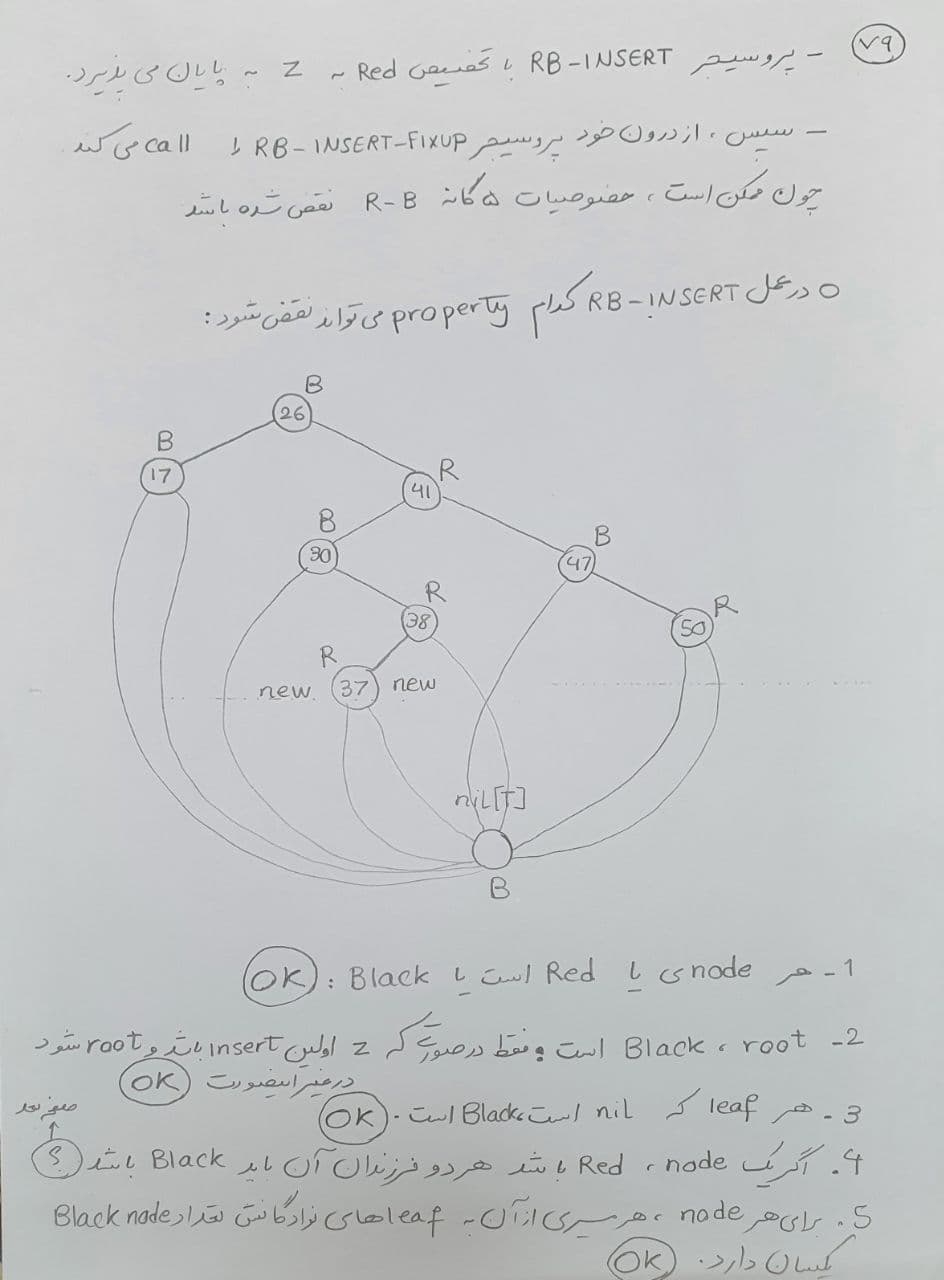 ۷۹
- پروسیجر RB-INSERT با تخصیص Red به Z به پایان می پذیرد.
- سپس، از درون خود پروسیجر RB-INSERT-FIXUP را call می کند
چون ممکن است، خصوصیات ۵ گانه R-B نقض شده باشد
o در عمل RB-INSERT کدام property می تواند نقض شود:
B
26
B
17
R
41
B
30
B
47
R
38
R
50
R
new 37 new
nil[T]
B
1- هر nodeی یا Red است یا Black: OK
2- root، Black است و فقط در صورتی که z اولین insert باشد و root شود
در غیر اینصورت OK
3. هر leaf که nil است، Black است. OK
صفحه بعد
4. اگر یک node، Red باشد هر دو فرزندان آن باید Black باشد ؟
5. برای هر node، هر مسیری از آن به leafهای نوادگانش تعداد Black node
یکسان دارد. OK